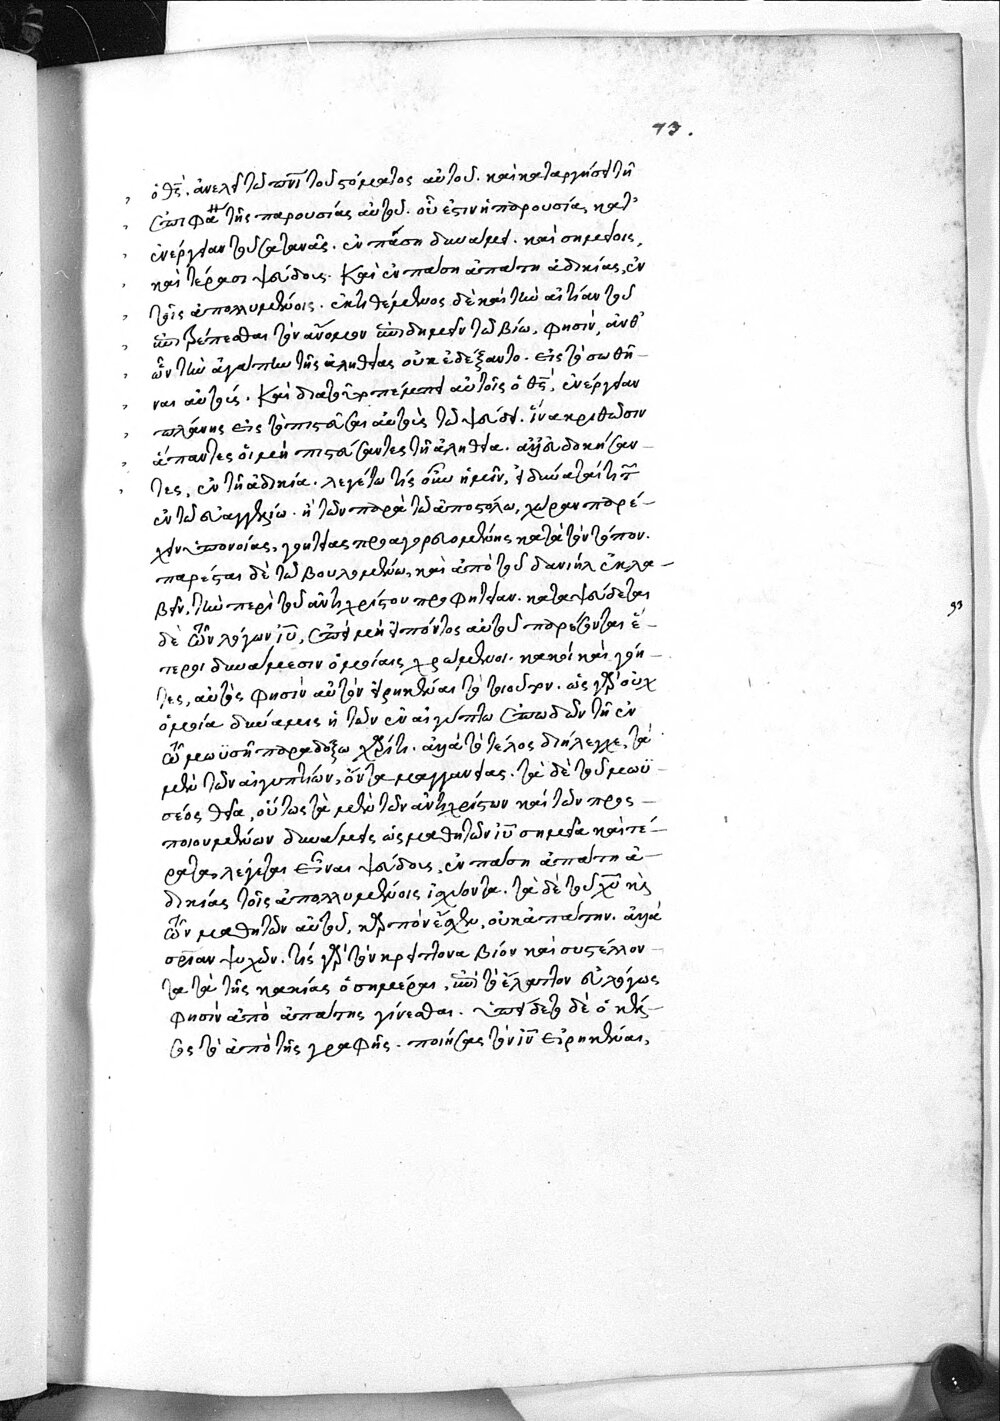 73.
ὁ θς̅. ἀνελεῖ τῷ πνι̅ τοῦ στόματος αὐτοῦ. καὶ καταργήσει τῇ
ἐπιφα τῆς παρουσίας αὐτοῦ. οὗ ἐστιν ἡ παρουσία, κατ'
ἐνέργειαν τοῦ σατανᾶ. ἐν πάσῃ δυνάμει. καὶ σημείοις,
καὶ τέρασι ψεύδους. Καὶ ἐν πάσῃ ἀπάτῃ ἀδικίας, ἐν
τοῖς ἀπολλυμένοις. ἐκτιθέμενος δὲ καὶ τὴν αἰτίαν τοῦ
ἐπιτρέπεσθαι τὸν ἄνομον ἐπιδημεῖν τῷ βίῳ, φησίν, ἀνθ'
ὧν τὴν ἀγάπην τῆς ἀληθείας οὐκ ἐδέξαντο. εἰς τὸ σωθῆ-
ναι αὐτούς. Καὶ διατοῦτο πέμπει αὐτοῖς ὁ θς̅, ἐνέργειαν
πλάνης εἰς τὸ πιστεῦσαι αὐτοὺς τῷ ψεύδει. ἵνα κριθῶσιν
ἅπαντες οἱ μὴ πιστεύσαντες τῇ ἀληθεία. ἀλλ' εὐδοκήσαν-
τες, ἐν τῇ ἀδικία. λεγέτω τίς οὖν ἡμῖν, εἰ δύναταί τι τῶν
ἐν τῷ εὐαγγελίω. ἢ τῶν παρὰ τῷ ἀποστόλω, χώραν παρέ-
χειν ὑπονοίας, γοητείας προαγορευομένης κατὰ τὸν τόπον.
παρέσται δὲ τῷ βουλομένω, καὶ ἀπὸ τοῦ δανιὴλ ἐκλα-
βεῖν, τὴν περὶ τοῦ ἀντιχρίστου προφητείαν. καταψεύδεται
δὲ τῶν λόγων ιυ̅, ἐπεὶ μὴ εἰπόντος αὐτοῦ παρέσονται ἕ-
τεροι δυνάμεσιν ὁμοίαις χρώμενοι. κακοὶ καὶ γόη-
τες, αὐτὸς φησὶν αὐτὸν εἰρηκέναι τὸ τοιοῦτον. ὡς γὰρ οὐχ
ὁμοία δύναμις ἡ τῶν ἐν αἰγύπτω ἐπωδῶν τῇ ἐν
τῷ μωϋσῆ παραδόξω χάριτι. ἀλλὰ τὸ τέλος διήλεγξε, τὰ
μὲν τῶν αἰγυπτίων, ὄντα μαγγανείας. τὰ δὲ τοῦ μωϋ-
σέος θεῖα, οὕτως τὰ μὲν τῶν ἀντιχρίστων καὶ τῶν προς-
ποιουμένων δυνάμεις ὡς μαθητῶν ιυ̅ σημεῖα καὶ τέ-
ρατα, λέγεται εἶναι ψεύδους, ἐν πάσῃ ἀπάτῃ ἀ-
δικίας τοῖς ἀπολλυμένοις ἰσχύοντα. τὰ δὲ τοῦ χυ̅ καὶ
τῶν μαθητῶν αὐτοῦ, καρπὸν ἔσχεν, οὐκ ἀπάτην. ἀλλὰ
σρίαν ψυχῶν. τίς γὰρ τὸν κρείττονα βίον καὶ συστέλλον-
τα τὰ τῆς κακίας ὁσημέραι, ἐπὶ τὸ ἔλαττον εὐλόγως
φησὶν ἀπὸ ἀπάτης γίνεσθαι. ὑπείδετο δὲ ὁ κέλ-
σος τὸ ἀπὸ τῆς γραφῆς. ποιήσας τὸν ιν̅ εἰρηκέναι,
93